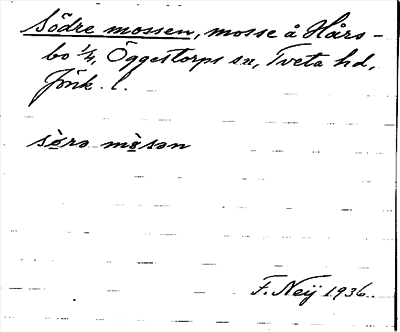 Södre mossen, mosse å Hårs-
bo 1/4, Öggestorps sn, Tveta hd,
Jönk. l.
sø̀rə mɵ̀sən
F. Neij 1936.